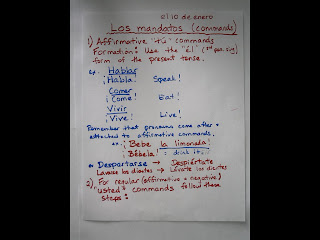 el 10 de enero
Los mandatos (commands)
1) Affirmative "tú" commands
Formation: Use the "él" (3rd per. sing)
form of the present tense.
ex. Hablar
¡Habla! Speak!
Comer
¡Come! Eat!
Vivir
¡Vive! Live!
Remember that pronouns come after +
attached to affirmative commands.
ex. ¡Bebe la limonada!
¡Bébela! drink it!
Despertarse → Despiértate
Lavarse los dientes → Lávate los dientes
2) For regular (affirmative + negative)
usted commands follow these
steps: